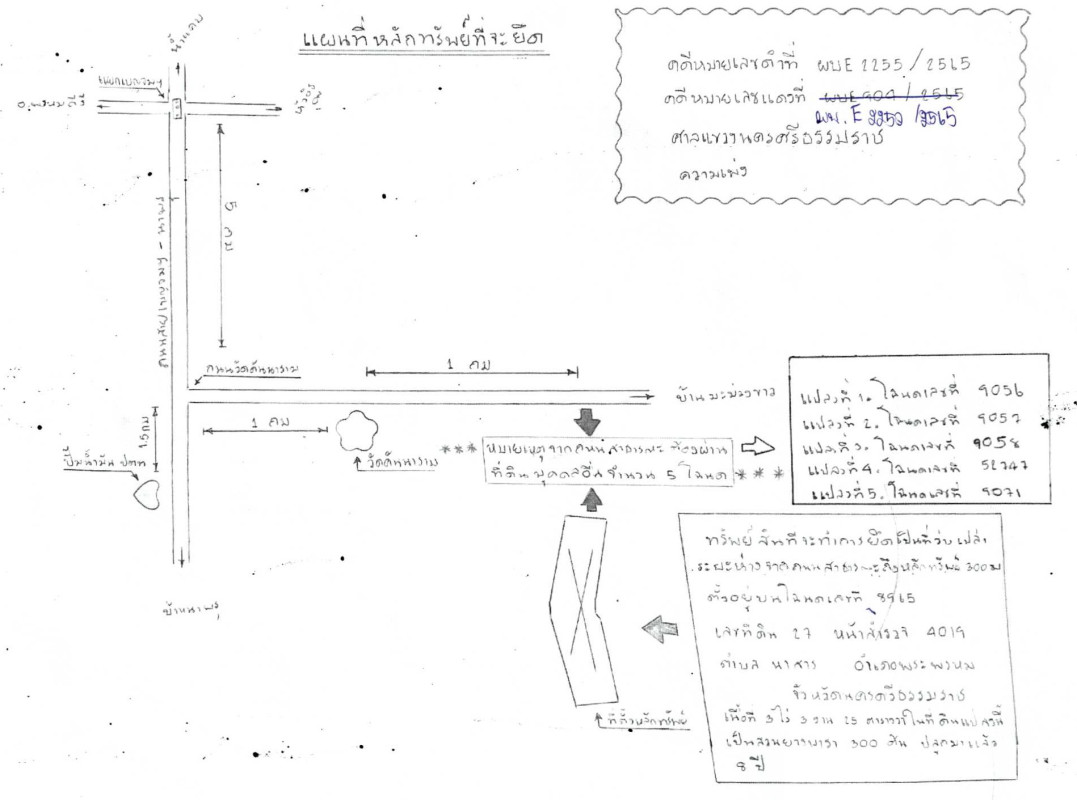 แผนที่หลักทรัพย์ที่จะยึด
คดีหมายเลขดำที่ ผบE 2255/2565
คดีหมายเลขแดงที่ ผบE 909 / 2565
ผบ. E 2252 /2565
ศาลแขวงนครศรีธรรมราช
ความแพ่ง
น้ำแคบ
แยกเบญจมฯ
อ.พรหมคีรี
หัวอิฐ
5 กม
ถนนสายเบญจมฯ - นาพรุ
ถนนวัดคันนาราม
1 กม
บ้านมะม่วงขาว
1 กม
1.5 กม
วัดคันนาราม
ปั๊มน้ำมัน ปตท
บ้านนาพรุ
*** หมายเหตุจากถนนสาธารณะ ต้องผ่าน
ที่ดินบุคคลอื่นจำนวน 5 โฉนด ***
แปลงที่ 1. โฉนดเลขที่ 9056
แปลงที่ 2. โฉนดเลขที่ 9057
แปลงที่ 3. โฉนดเลขที่ 9058
แปลงที่ 4. โฉนดเลขที่ 52747
แปลงที่ 5. โฉนดเลขที่ 9071
ทรัพย์สินที่จะทำการยึดเป็นที่ว่างเปล่า
ระยะห่างจากถนนสาธารณะถึงหลักทรัพย์ 300 ม
ตั้งอยู่บนโฉนดเลขที่ 8965
เลขที่ดิน 27 หน้าสำรวจ 4019
ตำบล นาสาร อำเภอพระพรหม
จังหวัดนครศรีธรรมราช
เนื้อที่ 3 ไร่ 3 งาน 25 ตารางวาในที่ดินแปลงนี้
เป็นสวนยางพารา 300 ต้น ปลูกมาแล้ว
8 ปี
ที่ตั้งหลักทรัพย์